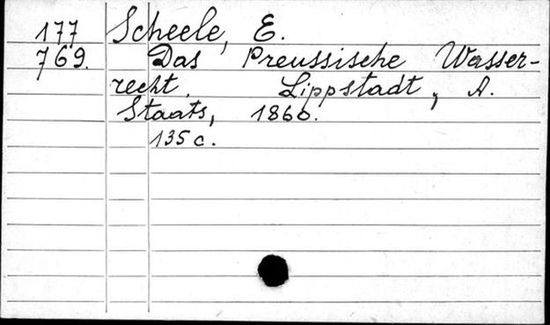 177 Scheele, E.
769. Das Preussische Wasser-
recht. Lippstadt, A.
Staats, 1860.
135 c.